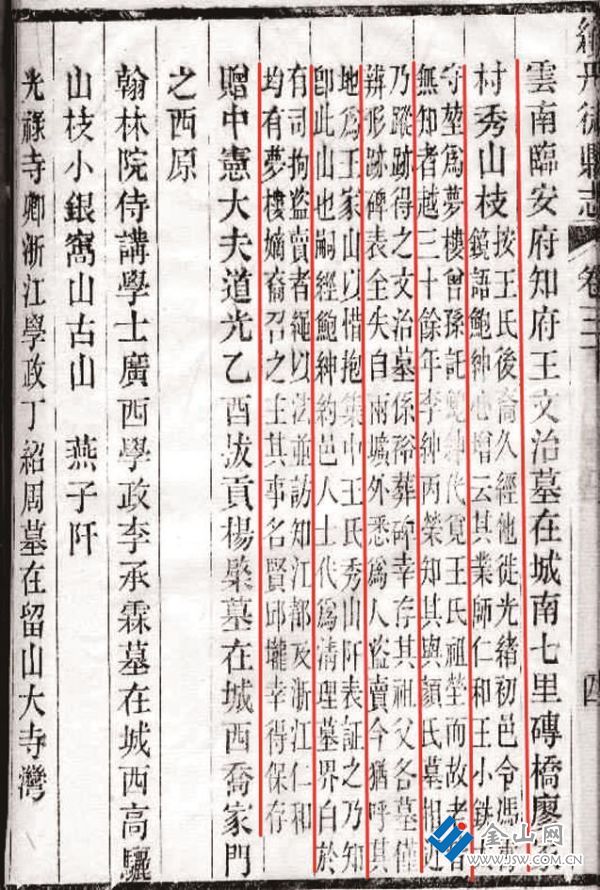 續丹徒縣志 卷三 四
雲南臨安府知府王文治墓在城南七里磚橋廖家
村秀山枝
按王氏後裔久經他徙光緒初邑令馮壽
鏡語鮑紳心增云其業師仁和王小鉄
守塋爲夢樓曾孫託鮑紳代覓王氏祖塋而故老皆
無知者越三十餘年李紳丙榮知其與顏氏墓相近
乃蹤跡得之文治墓係祔葬碑幸存其祖父各墓僅
辨形跡碑表全失自兩壙外悉爲人盜賣今猶呼其
地爲王家山以惜抱集中王氏秀山阡表証之乃知
卽此山也嗣經鮑紳約邑人士代爲清理墓界白於
有司拘盜賣者繩以法並訪知江都及浙江仁和
均有夢樓嫡裔召之主其事名賢邱壠幸得保存
贈中憲大夫道光乙酉拔貢楊棨墓在城西喬家門
之西原
翰林院侍講學士廣西學政李承霖墓在城西高驪
山枝小銀窩山古山 燕子阡
光祿寺卿浙江學政丁紹周墓在留山大寺灣
金山网
www.JSW.com.cn